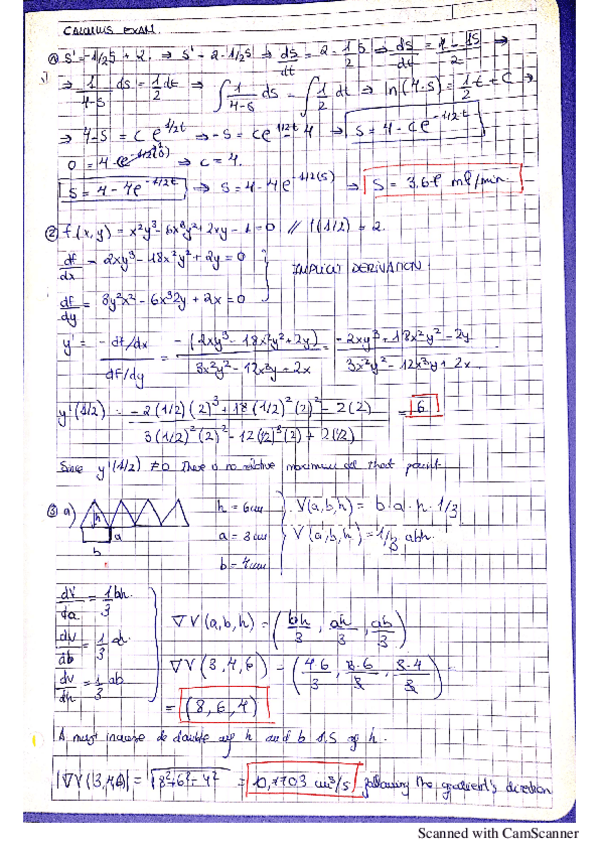 CALCULUS EXAM.
① S' = -1/2S + 2. ⇒ S' = 2 - 1/2S ⇒ dS/dt = 2 - 1/2 S ⇒ dS/dt = 4 - 1S / 2 ⇒
⇒ 1/(4-S) dS = 1/2 dt ⇒ ∫ 1/(4-S) dS = ∫ 1/2 dt ⇒ ln(4-S) = 1/2 t + C ⇒
⇒ 4-S = C e^1/2t ⇒ -S = Ce^1/2t - 4 ⇒ S = 4 - Ce^-1/2t
0 = 4 - Ce^-1/2(0) ⇒ C = 4.
S = 4 - 4e^-1/2t ⇒ S = 4 - 4e^-1/2(5) ⇒ S = 3,67 ml/min.
② f(x,y) = x²y³ - 6x³y² + 2xy - 1 = 0 // f(1/2) = 2.
df/dx = 2xy³ - 18x²y² + 2y = 0
IMPLICIT DERIVATION
df/dy = 3y²x² - 6x³2y + 2x = 0
y' = -df/dx / dF/dy = -(2xy³ - 18x²y² + 2y) / 3x²y² - 12x³y + 2x = -2xy³ + 18x²y² - 2y / 3x²y² - 12x³y + 2x
y'(1/2) = -2(1/2)(2)³ + 18(1/2)²(2)² - 2(2) / 3(1/2)²(2)² - 12(1/2)³(2) + 2(1/2) = 6
Since y'(1/2) ≠ 0 There is no relative maximum at that point.
③ a) h a b
h = 6cm V(a,b,h) = b·a·h·1/3
a = 3cm V(a,b,h) = 1/3 abh.
b = 4cm
dV/da = 1/3 bh.
∇V(a,b,h) = (bh/3, ah/3, ab/3)
dV/db = 1/3 ah.
∇V(3,4,6) = (4·6/3, 3·6/3, 3·4/3)
dV/dh = 1/3 ab
= (8,6,4)
A must increase de double of h and b 1.5 of h.
|∇V(3,4,6)| = √8²+6²+4² = 10,7703 cm³/s following the gradient's direction
Scanned with CamScanner